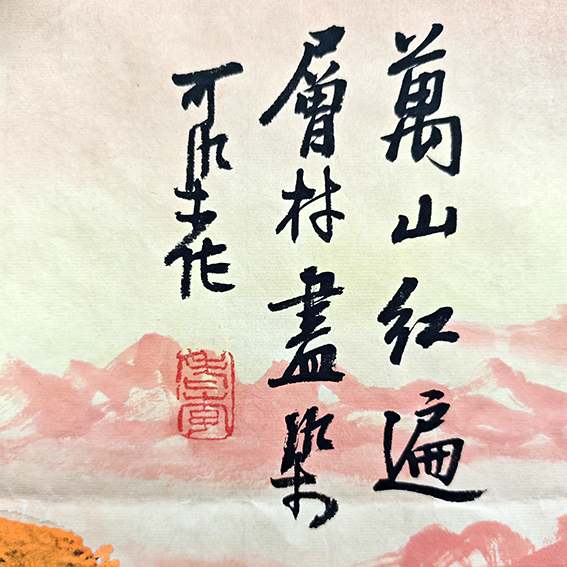 萬山红遍
層林盡染
可染作